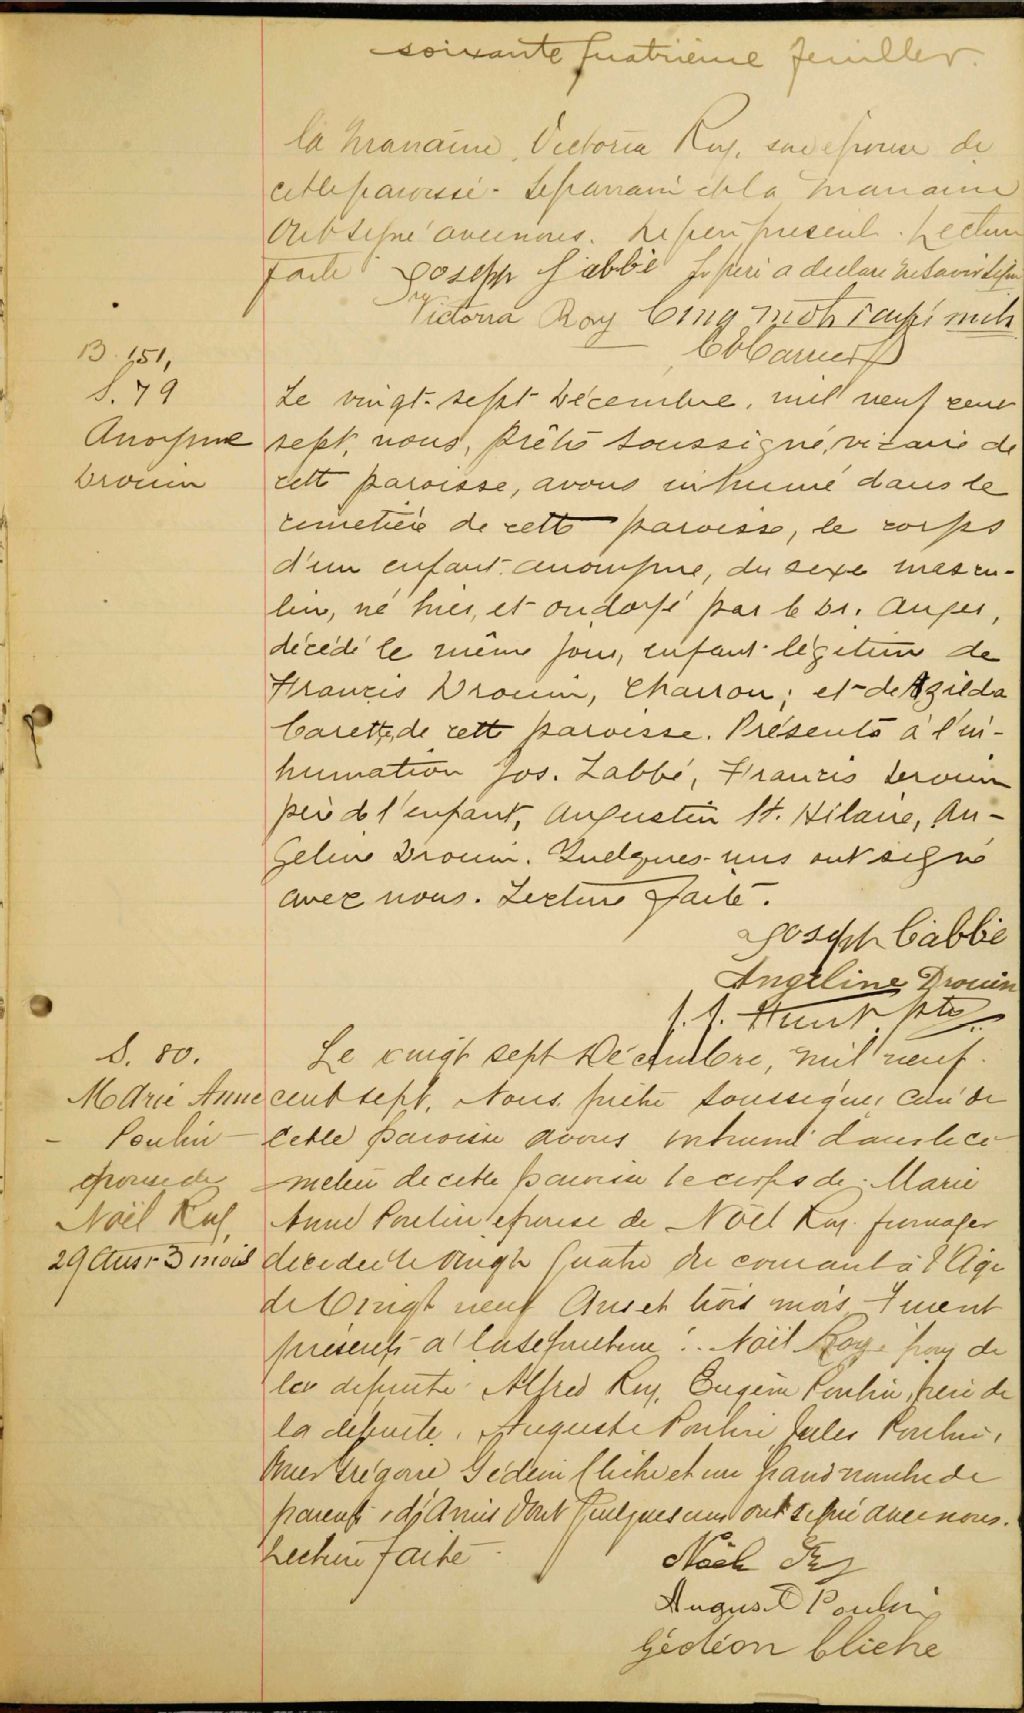 soixante quatrième feuillet.
la marraine, Victoria Roy, son épouse de
cette paroisse. Le parrain et la marraine
ont signé avec nous. Le père present. Lecture
faite. Joseph Labbé Le père a declaré ne savoir signer
Victoria Roy Cinq mots rayés nuls
B. 151,
S. 79
Anonyme
Drouin
Le vingt-sept Décembre, mil neuf cent
sept, nous, prêtre soussigné, vicaire de
cette paroisse, avons inhumé dans le
cimetière de cette paroisse, le corps
d'un enfant anonyme, du sexe mascu-
lin, né hier, et ondoyé par le Dr. Anger,
décédé le même jour, enfant légitime de
Francis Drouin, Charron; et de Azilda
Carette, de cette paroisse. Présents à l'in-
humation Jos. Labbé, Francis Drouin
père de l'enfant, Augustin St. Hilaire, An-
geline Drouin. Quelques-uns ont signé
avec nous. Lecture faite.
Joseph Labbé
Angéline Drouin
J. J. Hunt, ptre
S. 80.
Marie Anne
Poulin
épouse de
Noël Roy
29 ans 3 mois
Le vingt sept Décembre, mil neuf
cent sept, Nous prêtre soussigné, curé de
cette paroisse avons inhumé dans le ci
metière de cette paroisse le corps de Marie
Anne Poulin épouse de Noël Roy fromager
décédée le vingt quatre du courant à l'âge
de Vingt neuf Ans et trois mois Furent
présents à la sépulture: Noël Roy époux de
la défunte Alfred Roy, Eugène Poulin, père de
la défunte, Auguste Poulin Jules Poulin,
Omer Grégoire Gédéon Cliche et un grand nombre de
parents et d'Amis dont quelques uns ont signé avec nous.
Lecture faite
Noël Roy
August Poulin
Gédéon Cliche